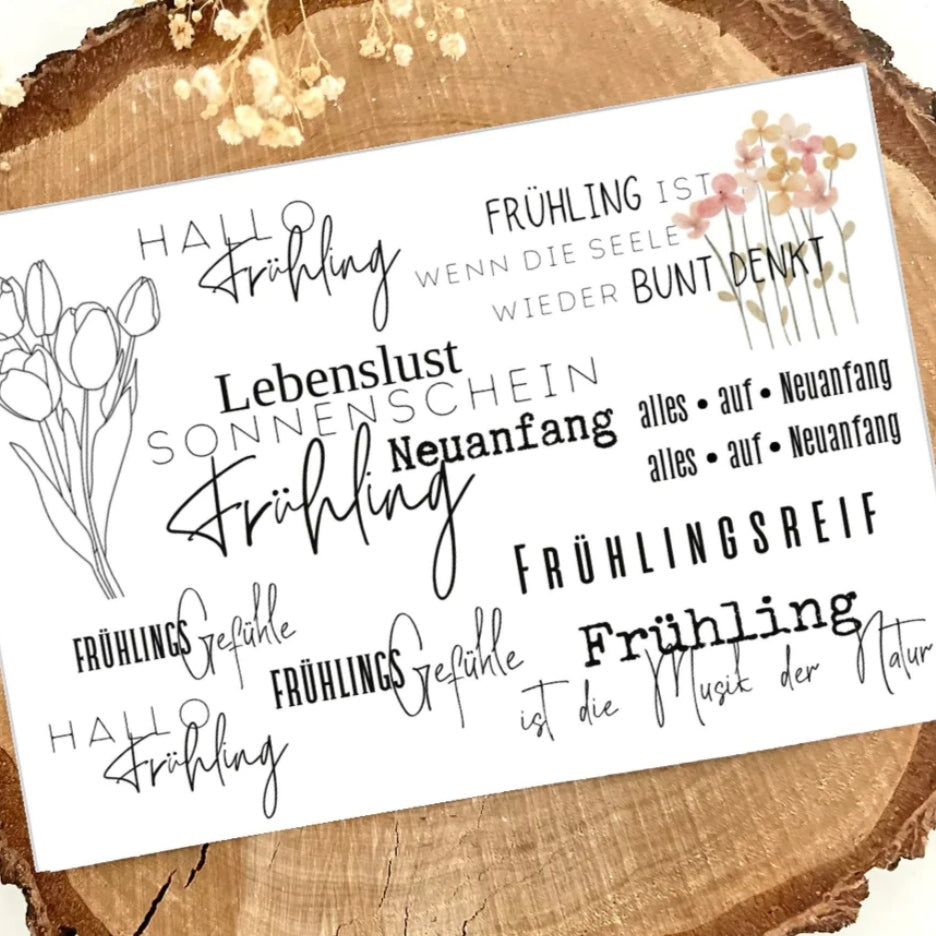 HALLO
Frühling
FRÜHLING IST
WENN DIE SEELE
WIEDER BUNT DENKT
Lebenslust
SONNENSCHEIN
Neuanfang
Frühling
alles • auf • Neuanfang
alles • auf • Neuanfang
FRÜHLINGSREIF
FRÜHLINGS Gefühle
FRÜHLINGS Gefühle
Frühling
ist die Musik der Natur
HALLO
Frühling